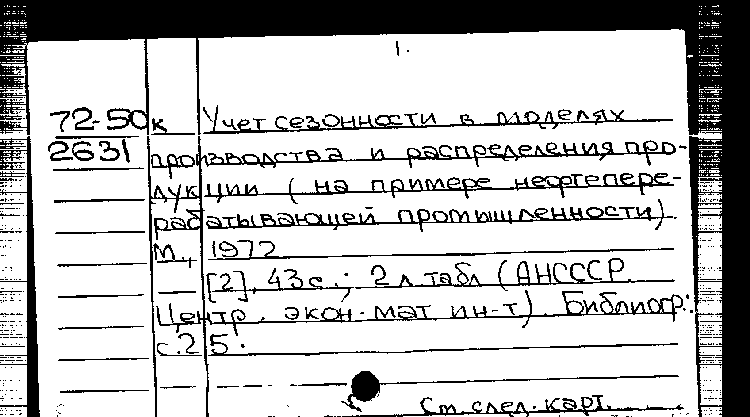 1.
72-50к Учет сезонности в моделях
2631 производства и распределения про-
дукции (на примере нефтепере-
рабатывающей промышленности)
М., 1972
[2], 43 с.; 2 л табл (АНСССР.
Центр. экон.-мат ин-т). Библиогр.:
с. 25.
См. след. карт.